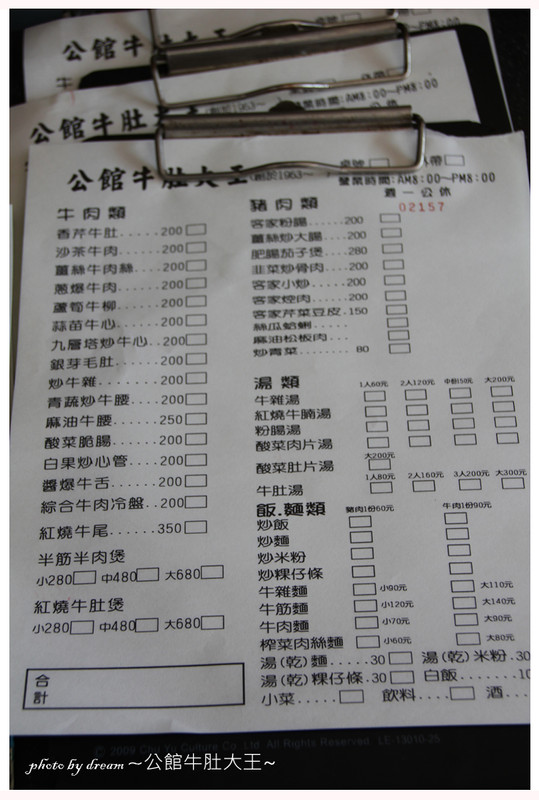 公館牛肚大王
營業時間:AM8:00~PM8:00
公館牛肚大
公館牛肚大王(創於1963~)
桌號
外帶
營業時間:AM8:00~PM8:00
週一公休
02157
牛肉類
香芹牛肚......200
沙茶牛肉......200
薑絲牛肉絲....200
蔥爆牛肉......200
蘆筍牛柳......200
蒜苗牛心......200
九層塔炒牛心..200
銀芽毛肚......200
炒牛雜........200
青蔬炒牛腰....200
麻油牛腰......250
酸菜脆腸......200
白果炒心管....200
醬爆牛舌......200
綜合牛肉冷盤..200
紅燒牛尾......350
半筋半肉煲
小280 中480 大680
紅燒牛肚煲
小280 中480 大680
合計
豬肉類
客家粉腸......200
薑絲炒大腸....200
肥腸茄子煲....280
韭菜炒骨肉....200
客家小炒......200
客家焢肉......200
客家芹菜豆皮.150
絲瓜蛤蜊.....
麻油松板肉...
炒青菜....... 80
湯類 1人60元 2人120元 中份150元 大200元
牛雜湯
紅燒牛腩湯
粉腸湯
酸菜肉片湯
酸菜肚片湯 大200元
牛肚湯 1人80元 2人160元 3人200元 大300元
飯.麵類 豬肉1份60元 牛肉1份90元
炒飯
炒麵
炒米粉
炒粿仔條
牛雜麵 小90元 大110元
牛筋麵 小120元 大140元
牛肉麵 小70元 大90元
榨菜肉絲麵 小60元 大80元
湯(乾)麵.....30 湯(乾)米粉.30
湯(乾)粿仔條.30 白飯.......10
小菜..... 飲料.... 酒...
© 2009 Chu Yu Culture Co. Ltd. All Rights Reserved. LE-13010-25
photo by dream ~公館牛肚大王~